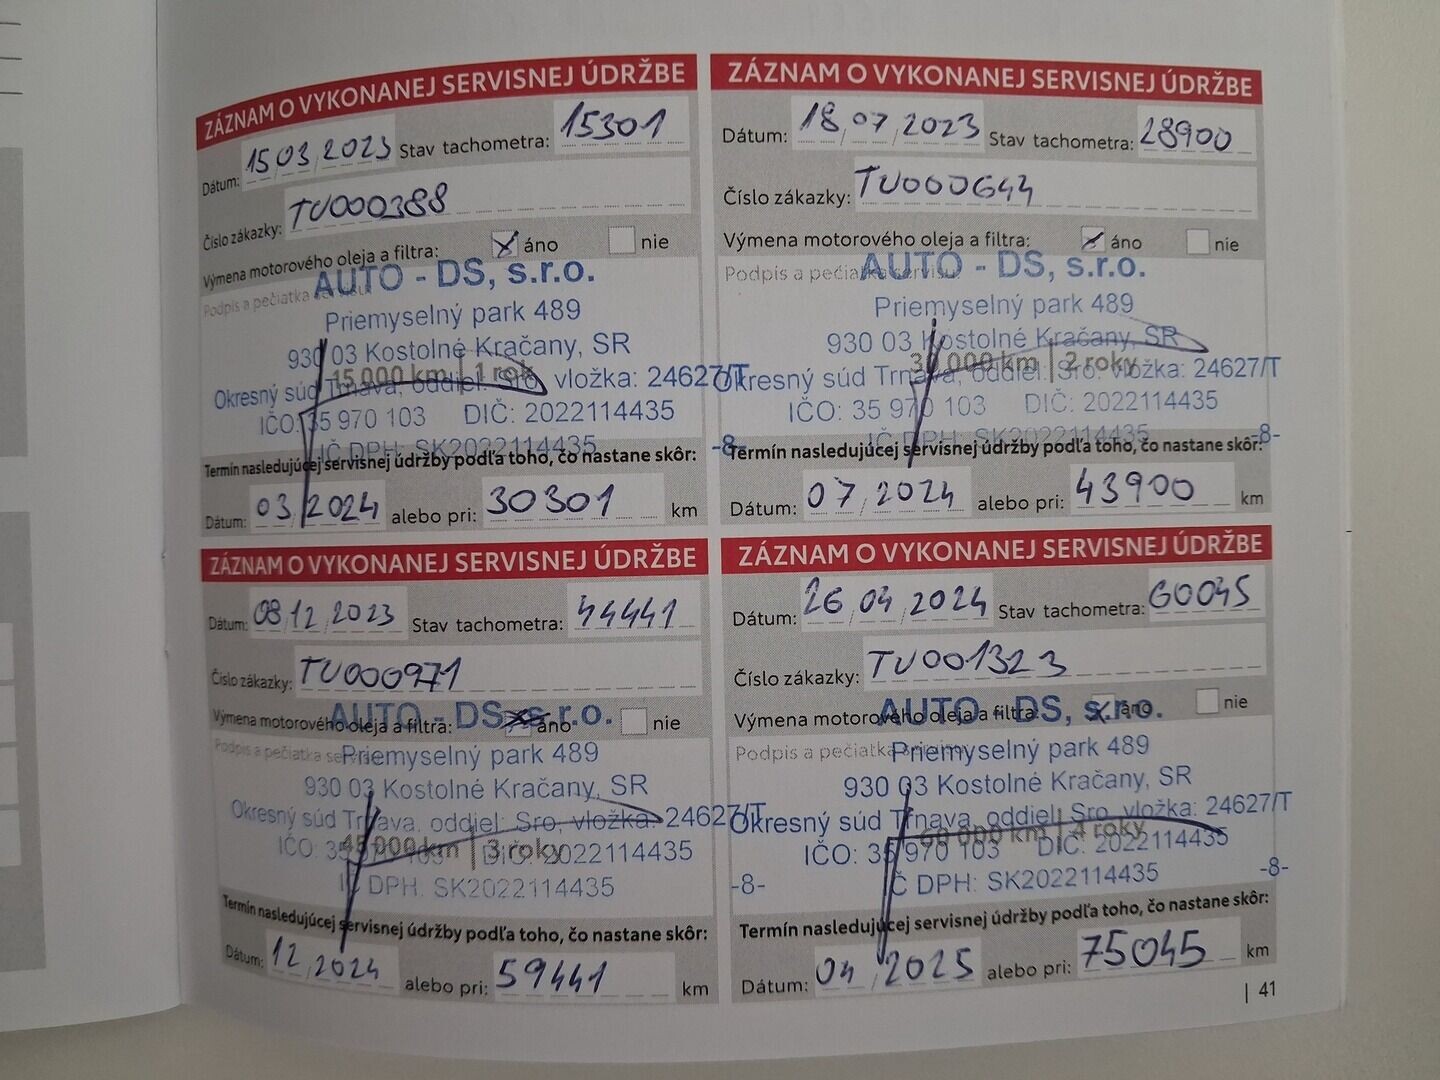 ZÁZNAM O VYKONANEJ SERVISNEJ ÚDRŽBE
Dátum: 15 03 2023 Stav tachometra: 15301
Číslo zákazky: TU000388
Výmena motorového oleja a filtra: áno nie
Podpis a pečiatka servisu
AUTO - DS, s.r.o.
Priemyselný park 489
930 03 Kostolné Kračany, SR
15 000 km | 1 rok
Okresný súd Trnava, oddiel: Sro, vložka: 24627/T
IČO: 35 970 103 DIČ: 2022114435
IČ DPH: SK2022114435 -8-
Termín nasledujúcej servisnej údržby podľa toho, čo nastane skôr:
Dátum: 03 2024 alebo pri: 30301 km
ZÁZNAM O VYKONANEJ SERVISNEJ ÚDRŽBE
Dátum: 18 07 2023 Stav tachometra: 28900
Číslo zákazky: TU000644
Výmena motorového oleja a filtra: áno nie
Podpis a pečiatka servisu
AUTO - DS, s.r.o.
Priemyselný park 489
930 03 Kostolné Kračany, SR
30 000 km | 2 roky
Okresný súd Trnava, oddiel: Sro, vložka: 24627/T
IČO: 35 970 103 DIČ: 2022114435
IČ DPH: SK2022114435 -8-
Termín nasledujúcej servisnej údržby podľa toho, čo nastane skôr:
Dátum: 07 2024 alebo pri: 43900 km
ZÁZNAM O VYKONANEJ SERVISNEJ ÚDRŽBE
Dátum: 08 12 2023 Stav tachometra: 44441
Číslo zákazky: TU000971
Výmena motorového oleja a filtra: áno nie
AUTO - DS, s.r.o.
Podpis a pečiatka servisu
Priemyselný park 489
930 03 Kostolné Kračany, SR
Okresný súd Trnava, oddiel: Sro, vložka: 24627/T
45 000 km | 3 roky
IČO: 35 970 103 DIČ: 2022114435
IČ DPH: SK2022114435 -8-
Termín nasledujúcej servisnej údržby podľa toho, čo nastane skôr:
Dátum: 12 2024 alebo pri: 59441 km
ZÁZNAM O VYKONANEJ SERVISNEJ ÚDRŽBE
Dátum: 26 04 2024 Stav tachometra: 60045
Číslo zákazky: TU001323
Výmena motorového oleja a filtra: áno nie
AUTO - DS, s.r.o.
Podpis a pečiatka servisu
Priemyselný park 489
930 03 Kostolné Kračany, SR
Okresný súd Trnava, oddiel: Sro, vložka: 24627/T
60 000 km | 4 roky
IČO: 35 970 103 DIČ: 2022114435
IČ DPH: SK2022114435 -8-
Termín nasledujúcej servisnej údržby podľa toho, čo nastane skôr:
Dátum: 04 2025 alebo pri: 75045 km
| 41